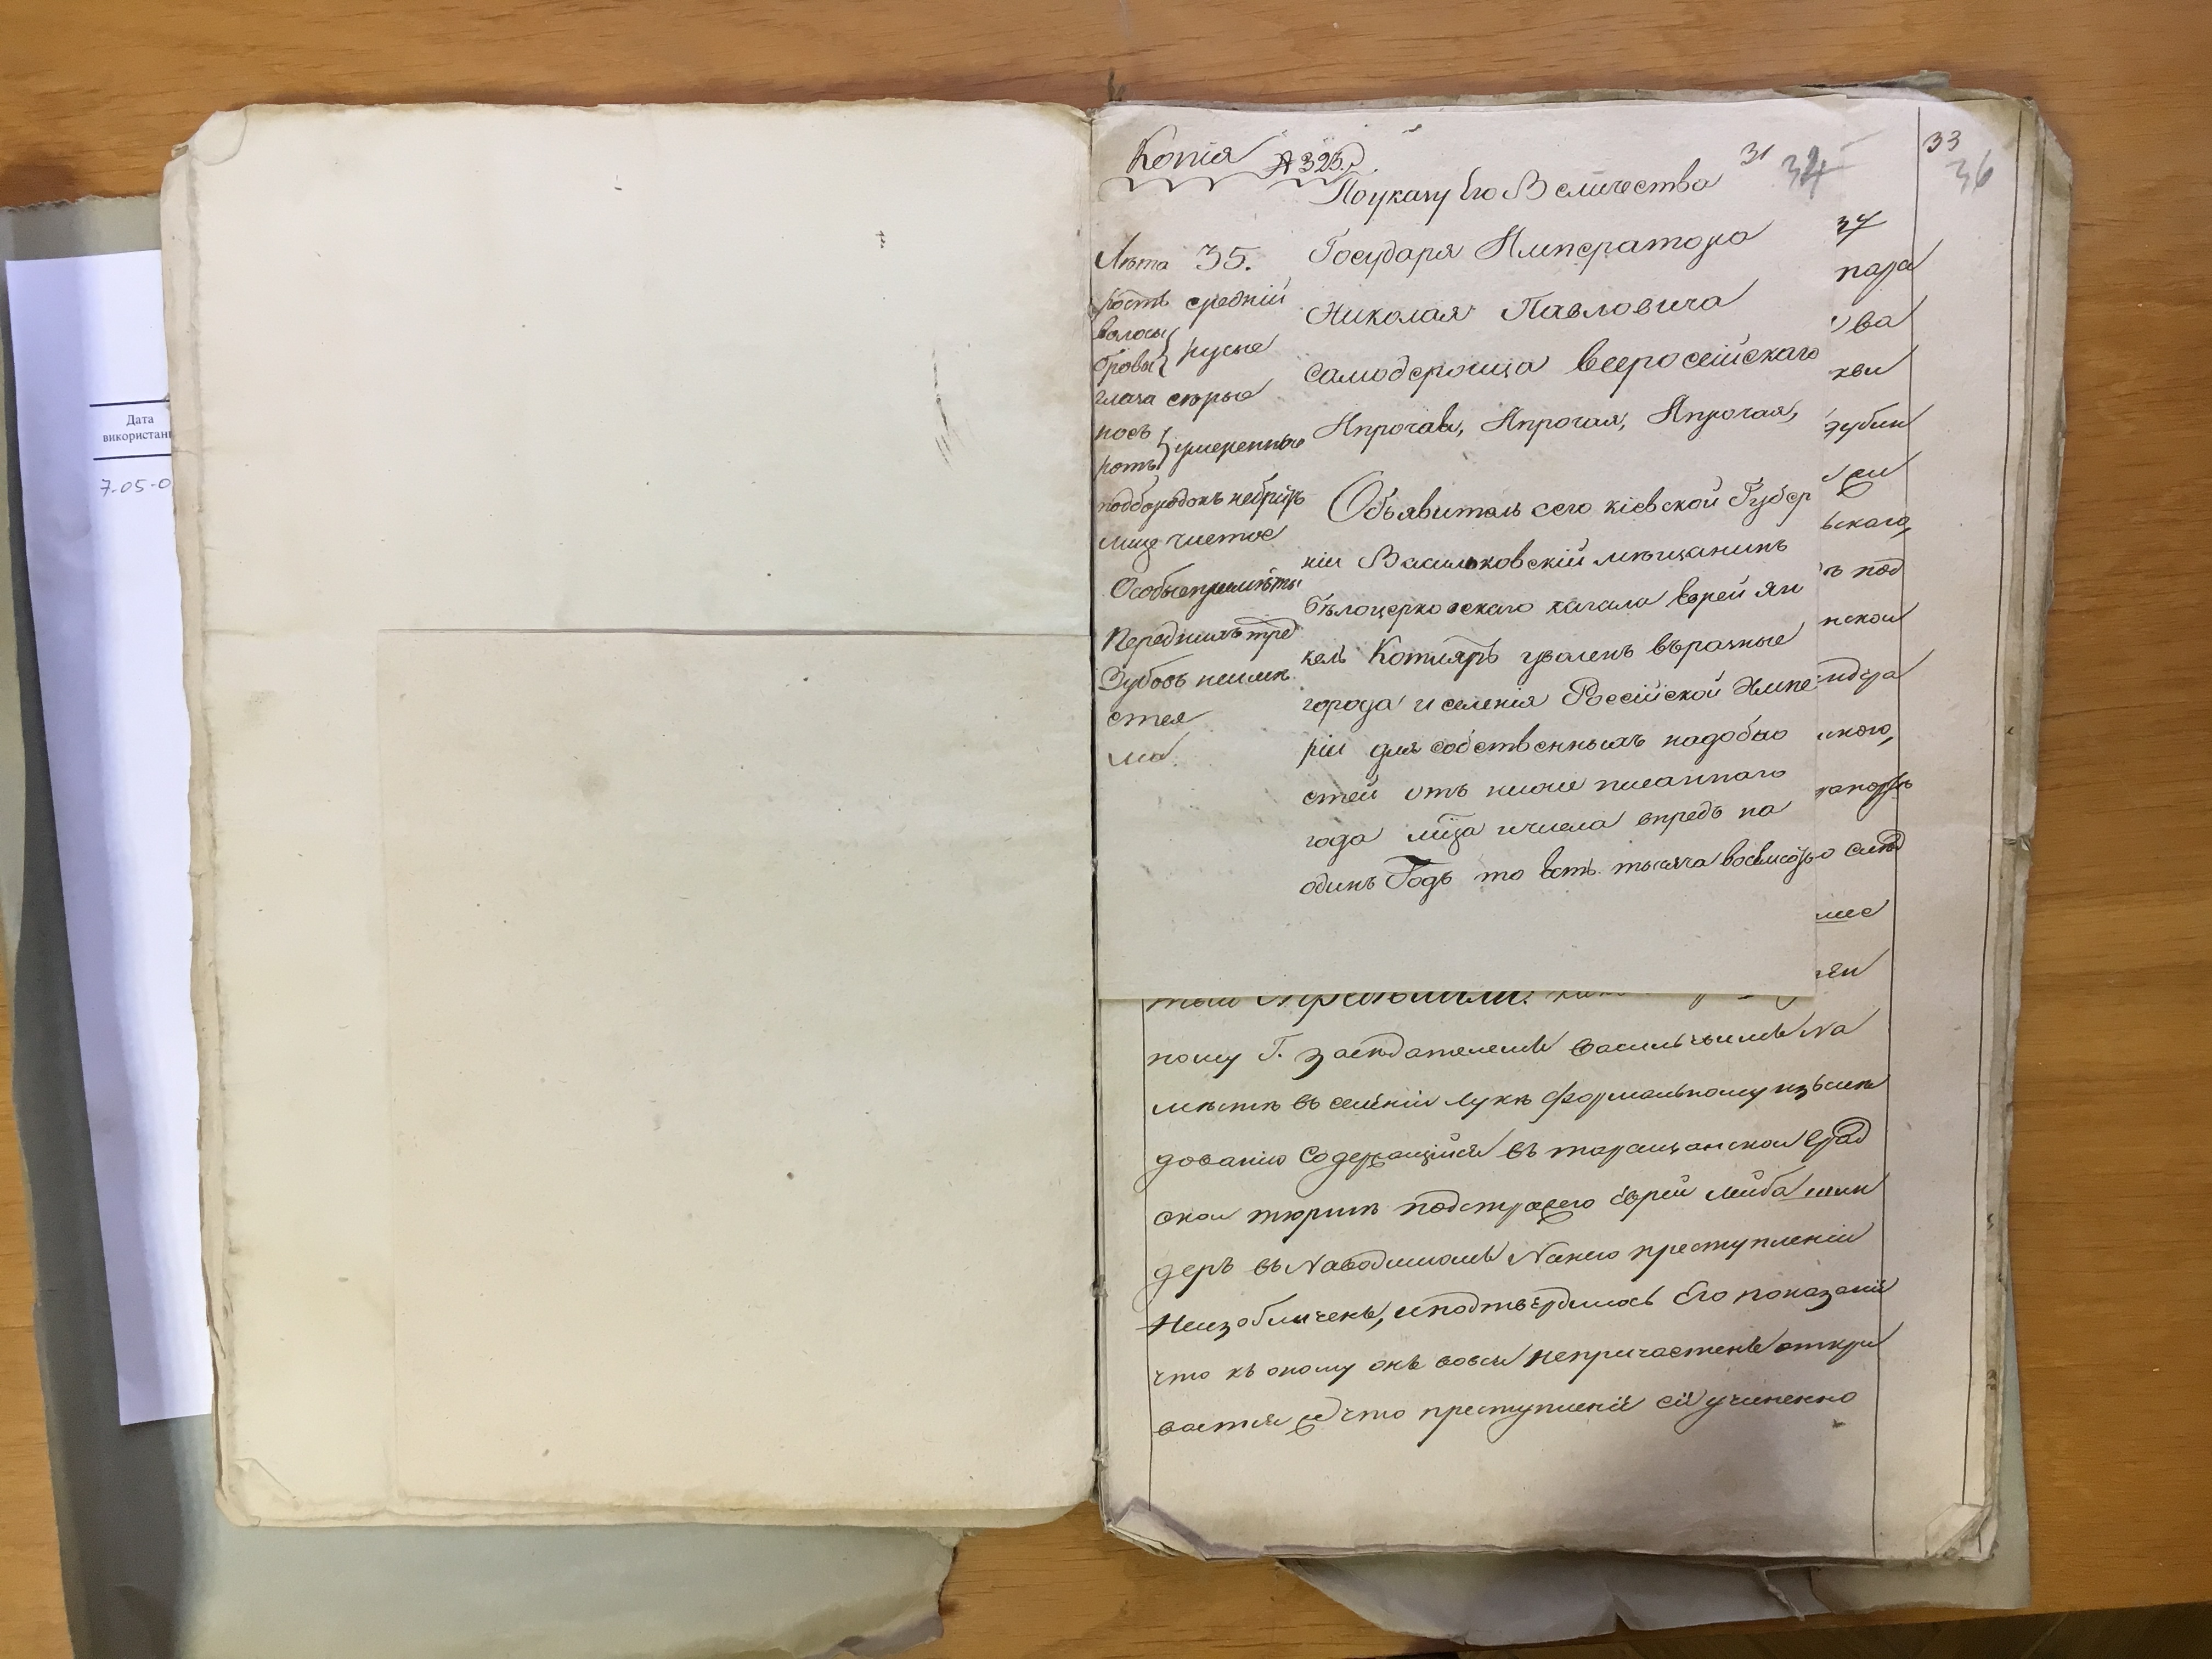 Дата
використан
7-05-0
Копія № 325.
31 34
33
36
По указу Его Величества
Государя Императора
Николая Павловича
Самодержца Всеросейскаго
И прочая, И прочая, И прочая,
Лѣта 35.
ростъ средній
волосы
бровы русые
глаза сѣрые
носъ
ротъ умеренные
подбородокъ небрить
лице чистое
Особыепримѣты
Переднихъ тред
Зубовъ неимѣ
ется
Объявитель сего кіевской Губер
ніи Васильковскій мѣщанинъ
бѣлоцерковскаго кагала Еврей Ян
кель Котляръ уволенъ въ разные
города и селенія Россійской Импе
ріи для собственныхъ надобно
стей отъ ниже писаннаго
года мца и числа впредь на
одинъ Годъ то есть тысяча восмисотъ
34
пара
ва
кви
зубин
ьскаго,
ъ под
нской
ндера
кого,
о слѣд
ному Г. засѣдателемъ Васильчымъ на
мѣстѣ въ селеніи Лукѣ формальному изъслѣ
дованію Содержащійся въ таращанской град
ской тюрмѣ подстражею Еврей Лейба шин
деръ въ Наводимомъ Нанего преступленіи
Неизобличенъ, и подтвердилось Его показаніе
что къ оному онъ вовсе непричастенъ откры
вается и что преступленіе сіе учиненно